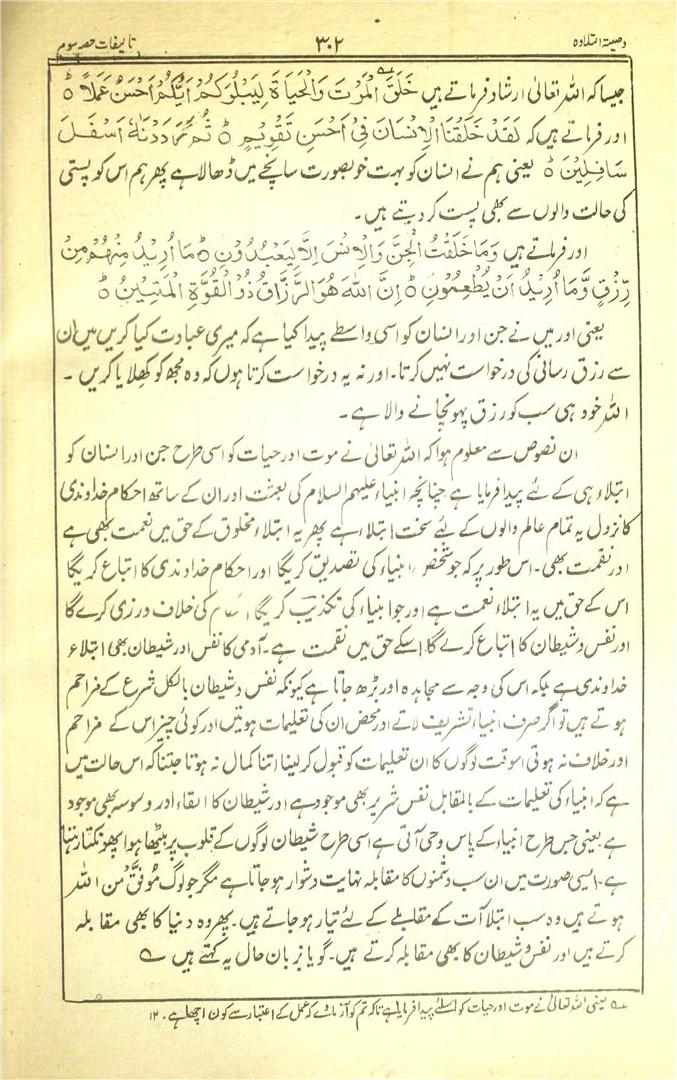 وصیۃ التلاوہ ۳۰۲ تالیفات حصہ سوم
جیسا کہ اللہ تعالیٰ ارشاد فرماتے ہیں خَلَقَ الْمَوْتَ وَالْحَيَاةَ لِيَبْلُوَكُمْ اَيُّكُمْ اَحْسَنُ عَمَلًا ؕ
اور فرماتے ہیں کہ لَقَدْ خَلَقْنَا الْاِنْسَانَ فِیْ اَحْسَنِ تَقْوِيْمٍ ؕ ثُمَّ رَدَدْنٰهُ اَسْفَلَ
سَافِلِيْنَ ؕ یعنی ہم نے انسان کو بہت خوبصورت سانچے میں ڈھالا ہے پھر ہم اس کو پستی
کی حالت والوں سے بھی پست کر دیتے ہیں۔
اور فرماتے ہیں وَمَا خَلَقْتُ الْجِنَّ وَالْاِنْسَ اِلَّا لِيَعْبُدُوْنِ ؕ مَا اُرِيْدُ مِنْهُمْ مِنْ
رِّزْقٍ وَّمَا اُرِيْدُ اَنْ يُّطْعِمُوْنِ ؕ اِنَّ اللهَ هُوَ الرَّزَّاقُ ذُو الْقُوَّةِ الْمَتِيْنُ ؕ
یعنی اور میں نے جن اور انسان کو اسی واسطے پیدا کیا ہے کہ میری عبادت کیا کریں میں ان
سے رزق رسانی کی درخواست نہیں کرتا۔ اور نہ یہ درخواست کرتا ہوں کہ وہ مجھ کو کھلایا کریں۔
اللہ خود ہی سب کو رزق پہونچانے والا ہے۔
ان نصوص سے معلوم ہوا کہ اللہ تعالیٰ نے موت اور حیات کو اسی طرح جن اور انسان کو
ابتلاء ہی کے لئے پیدا فرمایا ہے چنانچہ انبیاء علیہم السلام کی بعثت اور ان کے ساتھ احکام خداوندی
کا نزول یہ تمام عالم والوں کے لئے سخت ابتلاء ہے پھر یہ ابتلاء مخلوق کے حق میں نعمت بھی ہے
اور نقمت بھی۔ اس طور پر کہ جو شخص انبیاء کی تصدیق کریگا اور احکام خداوندی کا اتباع کریگا
اس کے حق میں یہ ابتلاء نعمت ہے اور جو انبیاء کی تکذیب کریگا کی خلاف ورزی کرے گا
اور نفس و شیطان کا اتباع کرے گا۔ اسکے حق میں نقمت ہے۔ آدمی کا نفس اور شیطان بھی ابتلاء
خداوندی ہے بلکہ اس کی وجہ سے مجاہدہ اور بڑھ جاتا ہے کیونکہ نفس و شیطان بالکل شرع کے مزاحم
ہوتے ہیں تو اگر صرف انبیاء تشریف لاتے اور محض ان کی تعلیمات ہوتیں اور کوئی چیز اس کے مزاحم
اور خلاف نہ ہوتی اسوقت لوگوں کا ان تعلیمات کو قبول کر لینا اتنا کمال نہ ہوتا جتنا کہ اس حالت میں
ہے کہ انبیاء کی تعلیمات کے بالمقابل نفس شریر بھی موجود ہے اور شیطان کا القاء اور وسوسہ بھی موجود
ہے یعنی جس طرح انبیاء کے پاس وحی آتی ہے اسی طرح شیطان لوگوں کے قلوب پر بیٹھا ہوا پھونکتا رہتا
ہے۔ ایسی صورت میں ان سب دشمنوں کا مقابلہ نہایت دشوار ہو جاتا ہے مگر جو لوگ مُوَفَّقْ مِن اللہ
ہوتے ہیں وہ سب ابتلاآت کے مقابلے کے لئے تیار ہو جاتے ہیں۔ پھر وہ دنیا کا بھی مقابلہ
کرتے ہیں اور نفس و شیطان کا بھی مقابلہ کرتے ہیں۔ گویا بزبان حال یہ کہتے ہیں ؎
یعنی اللہ تعالیٰ نے موت اور حیات کو اسلئے پیدا فرمایا ہے تاکہ تم کو آزماوے کہ عمل کے اعتبار سے کون اچھا ہے۔ ۱۲